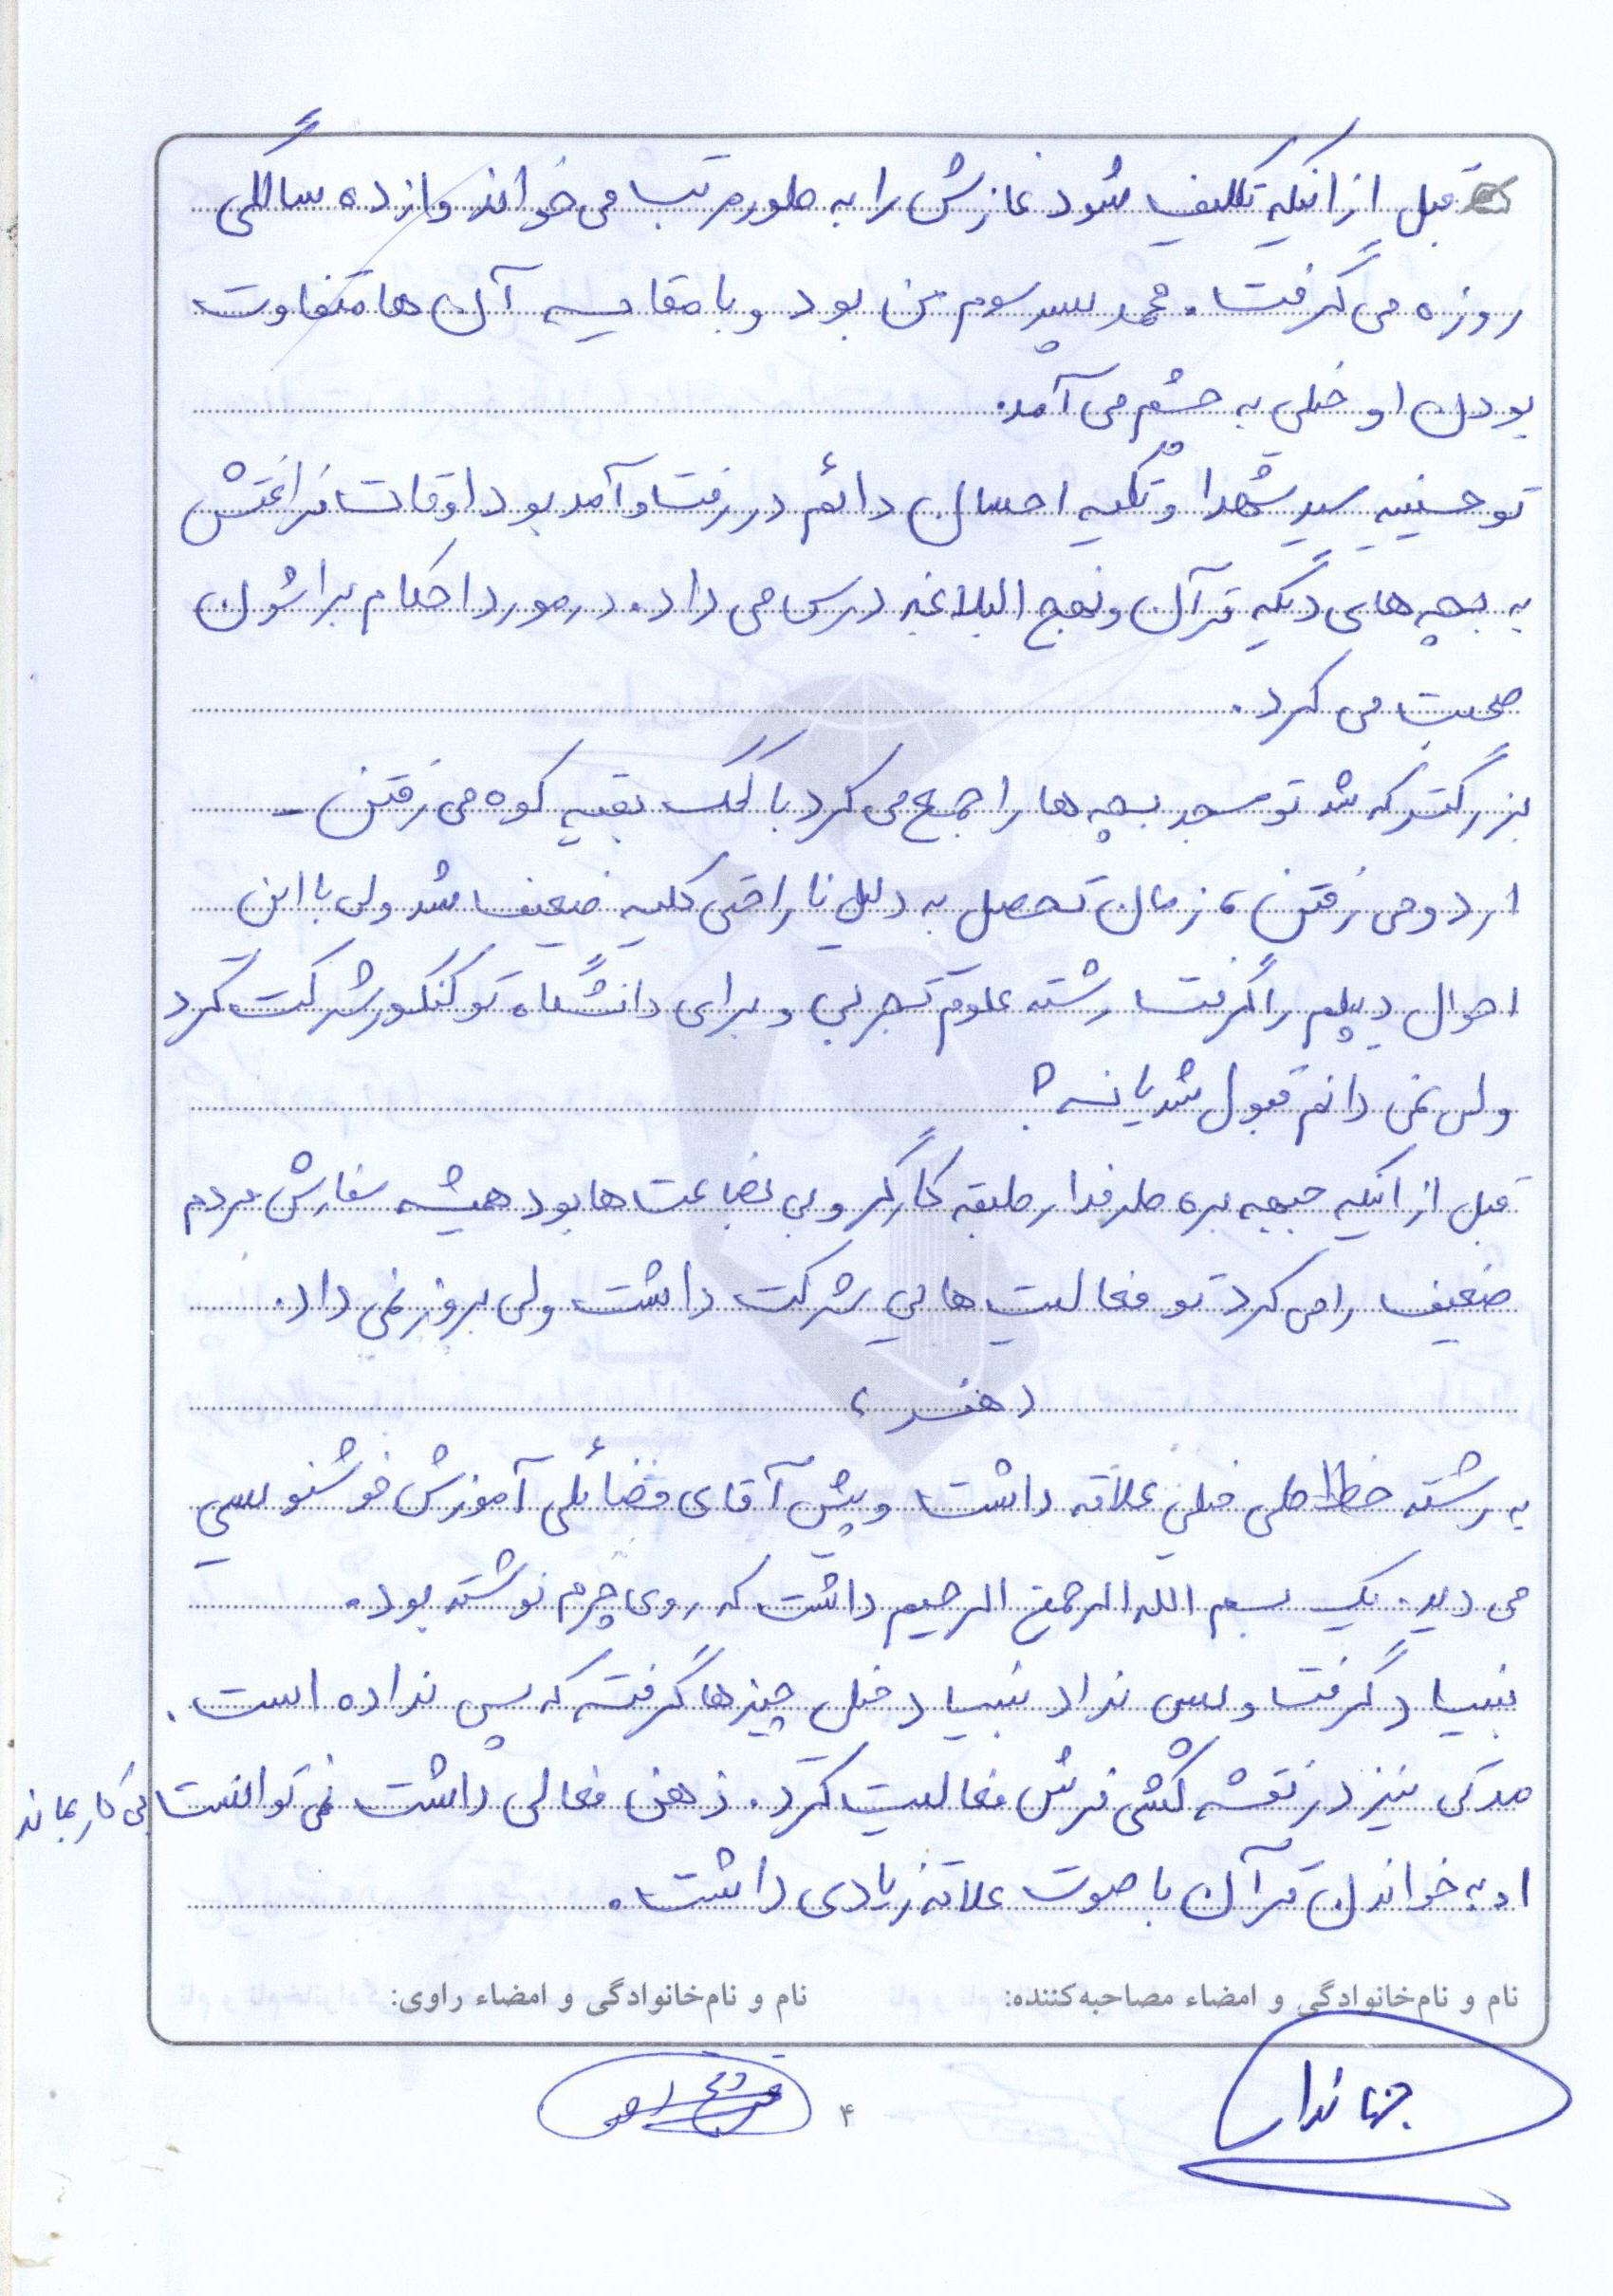 قبل از اینکه تکلیف شود نمازش را به طور مرتب می خواند و از ده سالگی
روزه می گرفت. محمد پسر سوم من بود و با مقایسه آن ها متفاوت
بودن او خیلی به چشم می آمد.
تو حسینیه سید شهدا و تکیه احسان دائم در رفت و آمد بود اوقات فراغتش
به بچه های دیگه قرآن و نهج البلاغه درس می داد. در مورد احکام براشون
صحبت می کرد.
بزرگتر که شد تو مسجد بچه ها را جمع می کرد با کمک بقیه کوه می رفتن -
اردو می رفتن، زمان تحصیل به دلیل ناراحتی کلیه ضعیف شد ولی با این
احوال دیپلم را گرفت رشته علوم تجربی و برای دانشگاه تو کنکور شرکت کرد
ولی نمی دانم قبول شد یا نه؟
قبل از اینکه جبهه بره طرفدار طبقه کارگر و بی بضاعت ها بود همیشه سفارش مردم
ضعیف را می کرد تو فعالیت هایی شرکت داشت ولی بروز نمی داد.
«هنر»
به رشته خطاطی خیلی علاقه داشت و پیش آقای فضائلی آموزش خوشنویسی
می دید. یک بسم الله الرحمن الرحیم داشت که روی چرم نوشته بود.
بنیاد گرفت و پس نداد بنیاد خیلی چیزها گرفته که پس نداده است.
مدتی نیز در نقشه کشی فرش فعالیت کرد. ذهن فعالی داشت نمی توانست بی کار بماند
او به خواندن قرآن با صوت علاقه زیادی داشت.
نام و نام‌خانوادگی و امضاء مصاحبه‌کننده: نام و نام‌خانوادگی و امضاء راوی:
جهاندار
۴